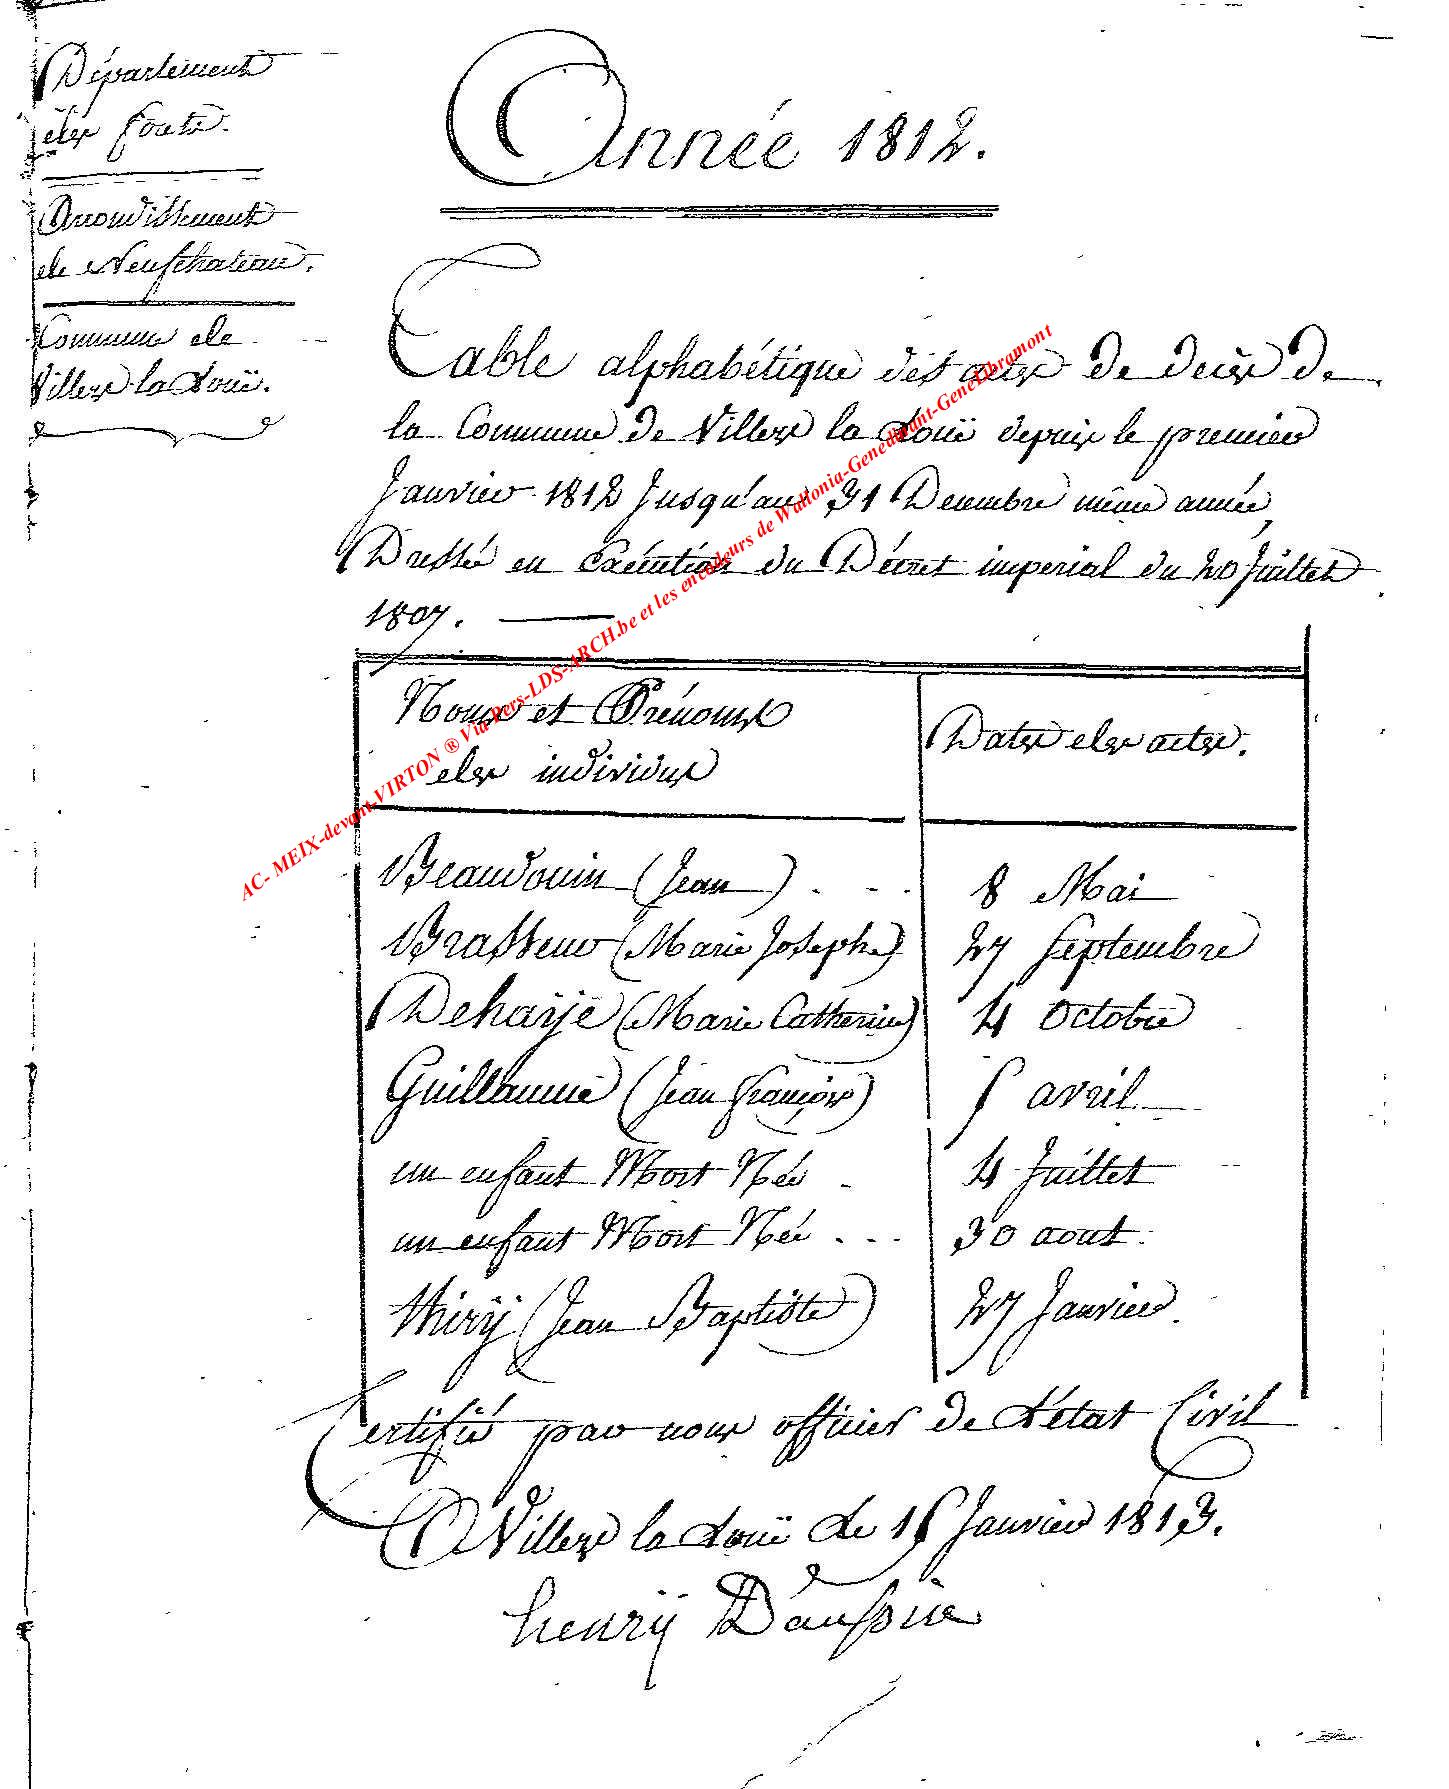 Département
des forets.
Arrondissement
de Neufchateau.
Commune de
Villers la Loüe.
Année 1812.
Table alphabétique des actes de decès de
la Commune de Villers la Loüe depuis le premier
Janvier 1812 Jusqu'au 31 Decembre même année,
Dressé en Exécution du Décret imperial du 20 Juillet
1807.
Noms et Prénoms
des individus
Dates des actes.
Beaudouin (Jean) . - - 8 Mai
Brasseur (Marie Josephe) 27 Septembre
Dehaÿe (Marie Catherine) 4 Octobre
Guillaume (Jean françois) 5 avril
un enfant Mort Née - 4 Juillet
un enfant Mort Née - - - 30 aout.
thirÿ (Jean Baptiste) 27 Janvier.
Certifié par nous officier de L'état Civil
A Villers la Loüe Le 15 Janvier 1813.
henrÿ
AC- MEIX-devant-VIRTON ® Via Pers-LDS-ARCH.be et les encodeurs de Wallonia-Genedinant-GeneLibramont